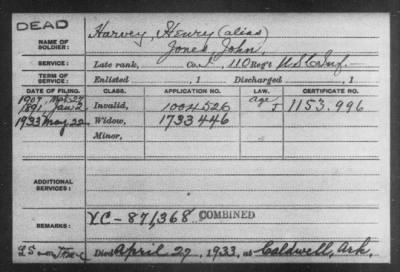 DEAD
NAME OF SOLDIER: Harvey, Henry (alias)
Jones, John,
SERVICE: Late rank, Co. I, 110 Regt U S C Inf.
TERM OF SERVICE: Enlisted , 1 Discharged , 1
DATE OF FILING. CLASS. APPLICATION NO. LAW. CERTIFICATE NO.
1907, Mar. 27
1891, Jan. 2 Invalid, 1004526 Age J 1153.996
1933 May 22 Widow, 1733446
Minor,
ADDITIONAL SERVICES:
REMARKS: XC-871,368 COMBINED
Died April 27, 1933, at Caldwell, Ark.